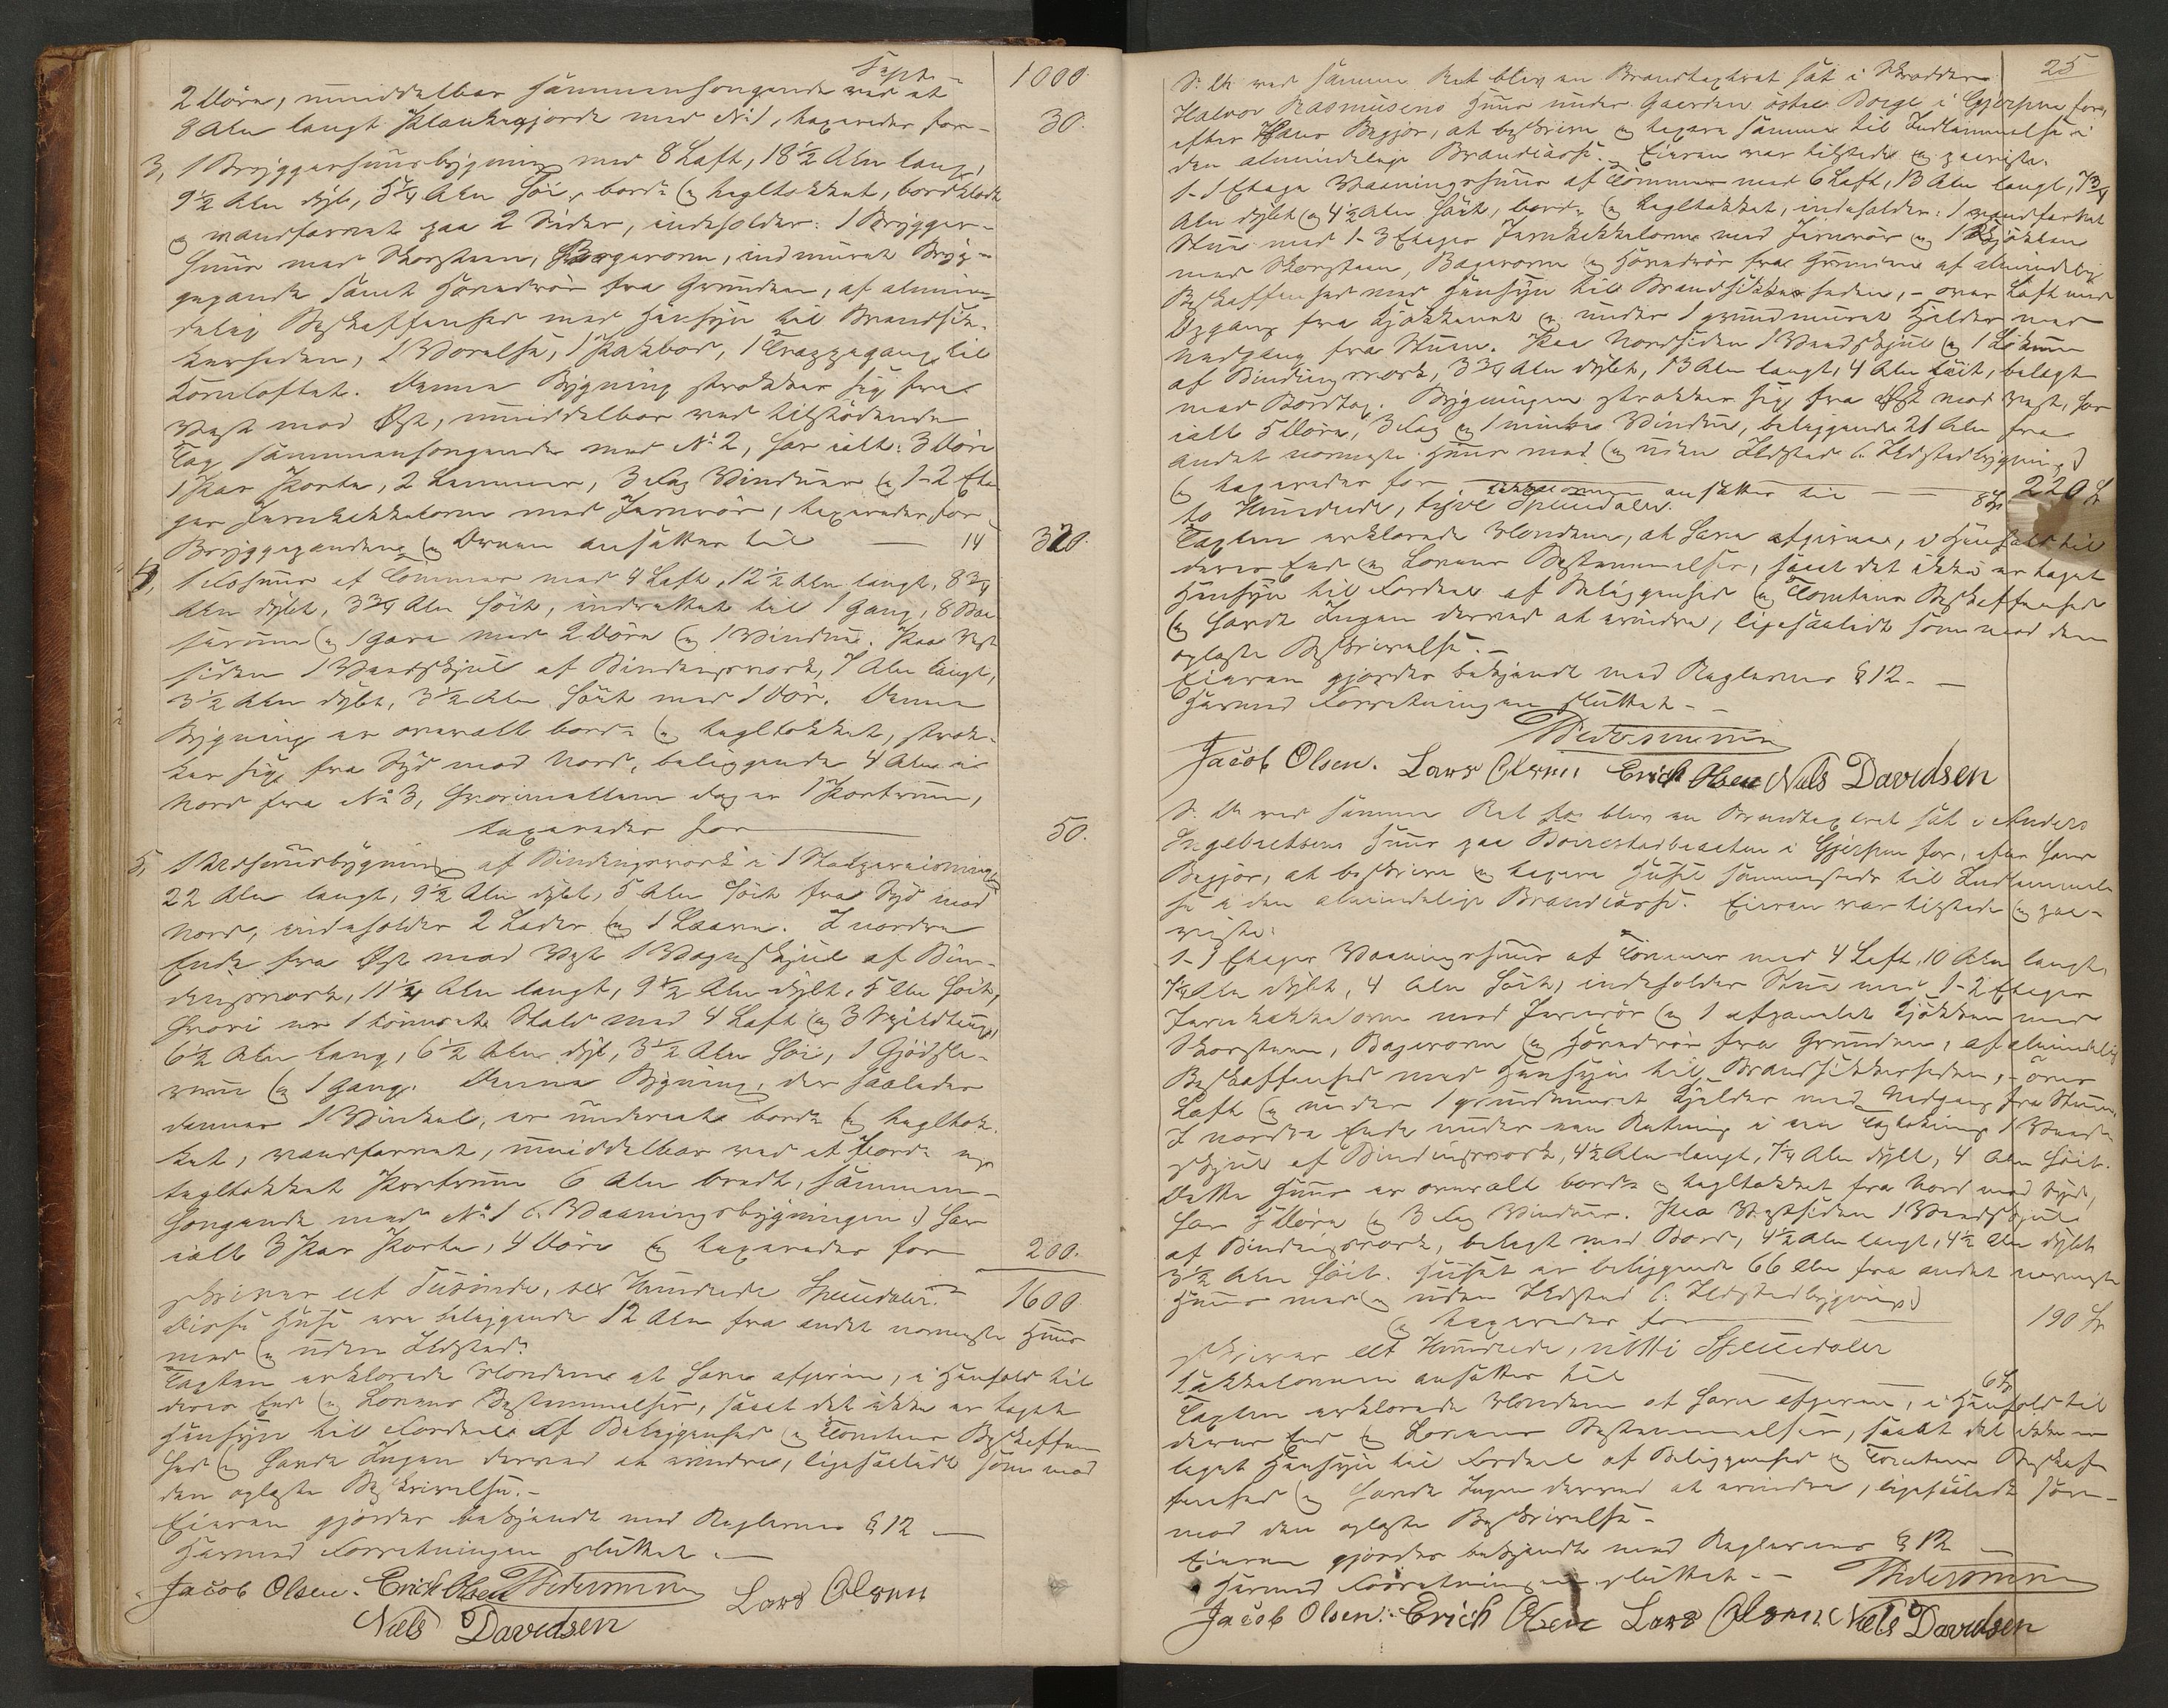 Transp. 1000
2 Döre, umiddelbar sammenhengende ved et
8 Alen langt Plankegjerde med No 1, taxeredes for 30.
3, 1 Bryggerhuusbygning med 8 Laft, 18½ Alen lang,
9½ Alen dyb, 5¼ Alen höi, bord- og tegltækket, bordklædt
og vandfarvet paa 2 Sider, indeholder: 1 Brygger-
huus med Skorsteen, Bagerovn, indmuret Bryg-
gepande samt Hörendrör fra Grunden, af almin-
delig Beskaffenhed med Hensyn til Brandsik-
kerheden, 1 Vorelse, 1 Pakbod, 1 Trappegang til
Kornloftet. Denne Bygning strækker sig fra
Vest mod Öst, umiddelbar ved tilstödende
Tag sammenhengende med No 2, har ialt: 3 Döre
1 Par Porte, 2 Lemmer, 3 Fag Vinduer og 1-2 Eta-
ges Jernkakkelovn med Jernrör, taxeredes for 320.
Bryggepanden og Ovnen ansættes til 14
4, 1 Fæhuus af Tömmer med 4 Laft, 12½ Alen langt, 8¾
Alen dybt, 3¾ Alen höit, indrettet til 1 Gang, 8 Baa-
serum og 1 Gare med 2 Döre og 1 Vindue. Paa Vest
siden 1 Vedskjul af Bindingsværk, 7 Alen langt,
3½ Alen dybt, 3½ Alen höit med 1 Dör. Denne
Bygning er overalt bord- og tegltækket, stræk-
ker sig fra Syd mod Nord, beliggende 4 Alen i
Nord fra No 3, hvorimellem dog er 1 Portrum,
taxeredes for 50.
5, 1 Udhuusbygning af Bindingsværk i 1 Stolpereisning
22 Alen langt, 9½ Alen dybt, 5 Alen höit fra Syd mod
Nord, indeholder 2 Lader og 1 Laave. I nordre
Ende fra Öst mod Vest 1 Vognskjul af Bin-
dingsværk, 11¼ Alen langt, 9½ Alen dybt, 5 Alen höit,
hvori er 1 tömret Stald med 4 Laft og 3 Spildtoug,
6½ Alen lang, 6½ Alen dyb, 3½ Alen höi, 1 Gjödsle-
rum og 1 Gang. Denne Bygning, der saaledes
danner 1 Vinkel, er underiate bord- og tegltæk-
ket, vandfarvet, umiddelbar ved et Bord- og
tegltækket Portrum 6 Alen bredt, sammen-
hengende med No 1 (: Vaaningsbygningen :) har
ialt 3 Par Porte, 4 Döre og taxeredes for 200.
skriver eet Tusinde, sex Hundrede Speciedaler. 1600
Disse Huse ere beliggende 12 Alen fra andet nærmeste Huus
med og uden Ildsted.
Taxten erklærede Mændene at have afgiven, i Henhold til
deres Eed og Lovens Bestemmelser, saaat det ikke er taget
Hensyn til Fordeel af Beliggenhed og Tomtens Beskaffen-
hed og havde Ingen derved at erindre, ligesaalidt som mod
den oplæste Beskrivelse. -
Eieren gjordes bekjendt med Reglernes § 12
Hermed Forretningen sluttet.
Jacob Olsen. Erich Olsen Lars Olsen
Niels Davidsen
25
S. D. ved samme Ret blev en Brandtaxtret sat i Skrædder
Halvor Rasmusens Huus under Gaarden östre Borge i Gjerpen for,
efter Hans Begjær, at beskrive og taxere samme til Indlemmelse i
den almindelige Brandcasse. Eieren var tilstede og paaviste.
1-1 Etages Vaaningshuus af Tömmer med 6 Laft, 13 Alen langt, 7¾
Alen dybt og 4½ Alen höit, bord- og tegltækket, indeholder: 1 vandfarvet
Stue med 1-3 Etages Jernkakkelovn med Jernrör og 1 Kjökken
med Skorsteen, Bagerovn og Hörendrör fra Grunden af almindelig
Beskaffenhed med Hensyn til Brandsikkerheden, - over Loft med
Opgang fra Kjökkenet og under 1 grundmuret Kjelder med
Nedgang fra Stuen. Paa Nordsiden 1 Vedskjul og 1 Lokum
af Bindingsværk, 3¾ Alen dybt, 13 Alen langt, 4 Alen höit, belagt
med Bordtag. Bygningen strækker sig fra Öst mod Vest, har
ialt 5 Döre, 3 Fag og 1 mindre Vindue, beliggende 21 Alen fra
andet nærmeste Huus med og uden Ildsted (: Ildstedbygning :)
og taxeredes for 220 Sp
Kakkelovnen ansættes til 8 Sp
to Hundrede, tyve Speciedaler.
Taxten erklærede Mændene, at have afgiven, i Henhold til
deres Eed og Lovens Bestemmelser, saaat det ikke er taget
Hensyn til Fordeel af Beliggenhed og Tomtens Beskaffenhed
og havde Ingen derved at erindre, ligesaalidt som mod den
oplæste Beskrivelse. -
Eieren gjordes bekjendt med Reglernes § 12. -
Hermed Forretningen sluttet. -
Jacob Olsen. Lars Olsen Erich Olsen Niels Davidsen
S. D. ved samme Ret blev en Brandtaxtret sat i Anders
Ingebretsens Huus paa Böirestadbraaten i Gjerpen for, efter Hans
Begjær, at beskrive og taxere Huset sammesteds til Indlemmel-
se i den almindelige Brandcasse. Eieren var tilstede og paa-
viste:
1-1 Etages Vaaningshuus af Tömmer med 4 Laft, 10 Alen langt,
7¼ Alen dybt, 4 Alen höit, indeholder Stue med 1-2 Etages
Jernkakkelovn med Jernrör og 1 afpanelet Kjökken med
Skorsteen, Bagerovn og Hörendrör fra Grunden, af almindelig
Beskaffenhed med Hensyn til Brandsikkerheden, - över
Loft og under 1 grundmuret Kjelder med Nedgang fra Stuen.
I nordre Ende under een Retning i een Tagtækning 1 Veed-
skjul af Bindingsværk, 4½ Alen langt, 7¼ Alen dybt, 4 Alen höit.
Dette Huus er overalt bord- og tegltækket fra Nord mod Syd,
har 5 Döre og 3 Fag Vinduer. Paa Vestsiden 1 Vedskjul
af Bindingsværk, belagt med Bord, 4½ Alen langt, 4½ Alen dybt
3½ Alen höit. Huset er beliggende 66 Alen fra andet nærmeste
Huus med og uden Ildsted (: Ildstedbygning :)
og taxeredes for 190 Sp
skriver eet Hundrede, nitti Speciedaler
Kakkelovnen ansættes til 6 Sp
Taxten erklærede Mændene at have afgiven, i Henhold til
deres Eed og Lovens Bestemmelser, saaat det ikke er
taget Hensyn til Fordeel af Beliggenhed og Tomtens Beskaf-
fenhed og havde Ingen derved at erindre, ligesaalidt som
mod den oplæste Beskrivelse -
Eieren gjordes bekjendt med Reglernes § 12
Hermed Forretningen sluttet. -
Jacob Olsen. Erich Olsen Lars Olsen Niels Davidsen